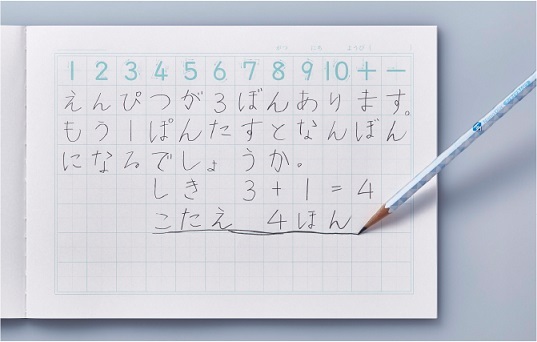 がつ にち ようび( )
1 2 3 4 5 6 7 8 9 10 + −
えんぴつが3ぼんあります。
もう1ぽんたすとなんぼん
になるでしょうか。
しき 3+1=4
こたえ 4ほん